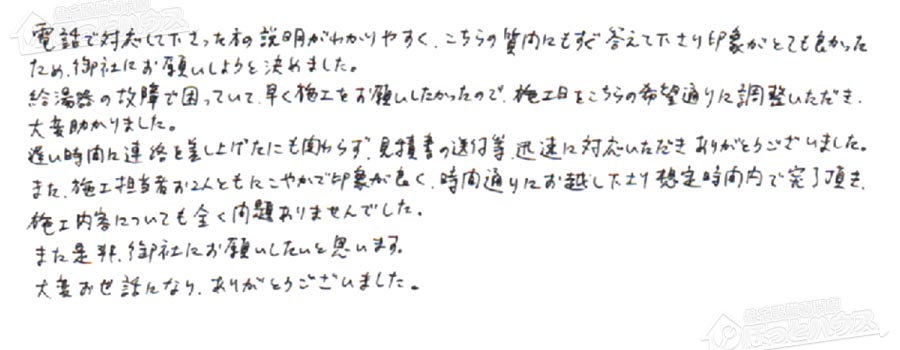 電話で対応して下さった杉の説明がわかりやすく、こちらの質問にもすぐ答えて下さり印象がとても良かった
ため、御社にお願いしようと決めました。
給湯器の故障で困っていて、早く施工をお願いしたかったので、施工日をこちらの希望通りに調整いただき、
大変助かりました。
遅い時間に連絡を差し上げたにも関わらず、見積書の送付等、迅速に対応いただきありがとうございました。
また、施工担当者お2人ともにこやかで印象が良く、時間通りにお越し下さり想定時間内で完了頂き、
施工内容についても全く問題ありませんでした。
また是非、御社にお願いしたいと思います。
大変お世話になり、ありがとうございました。
ほっとハウス